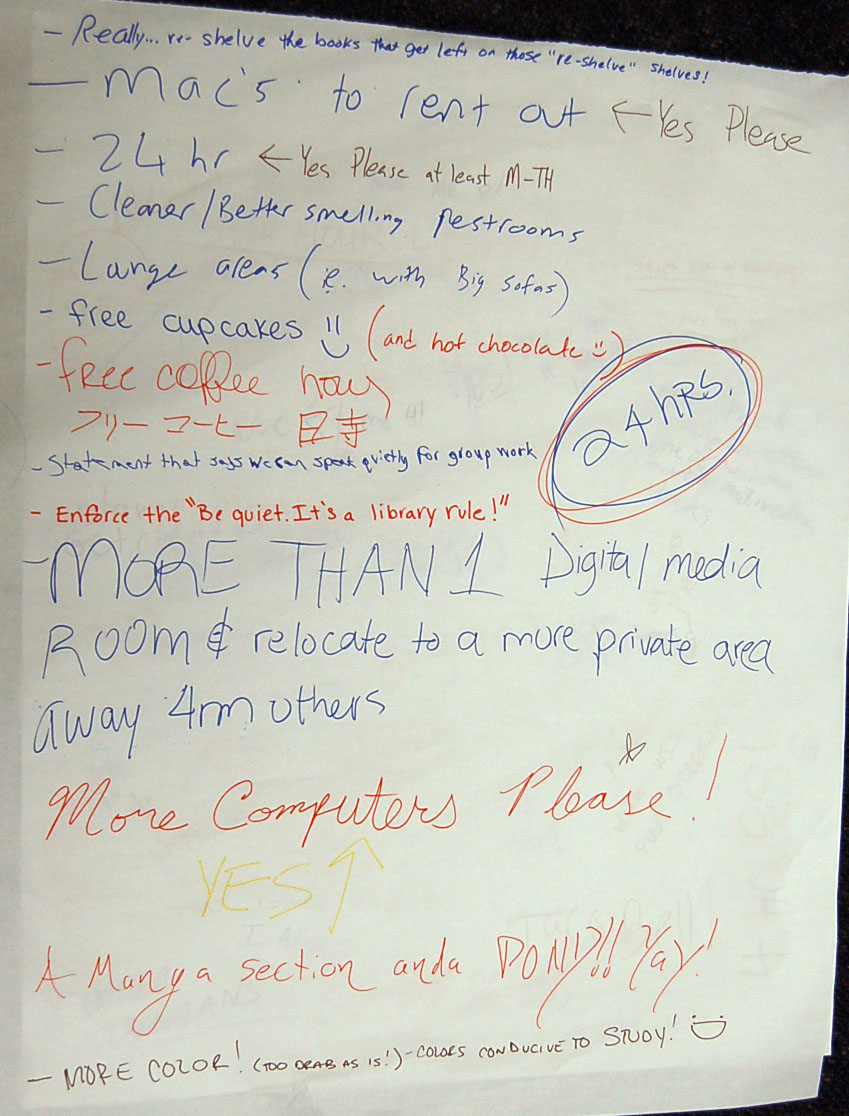 - Really... re-shelve the books that get left on those "re-shelve" shelves!
- Mac's to rent out ← Yes Please
- 24 hr ← Yes Please at least M-TH
- Cleaner/Better smelling restrooms
- Large areas (ie. with Big sofas)
- free cupcakes :) (and hot chocolate :))
- free coffee hour
フリー コーヒー 時
24 hrs.
- Statement that says we can speak quietly for group work
- Enforce the "Be quiet. It's a library rule!"
- MORE THAN 1 Digital media
ROOM & relocate to a more private area
away 4rm others
More Computers Please!
YES ↑
A Manga section anda PONY!! Yay!
- MORE COLOR! (TOO DRAB AS IS!) - COLORS CONDUCIVE TO STUDY! :)